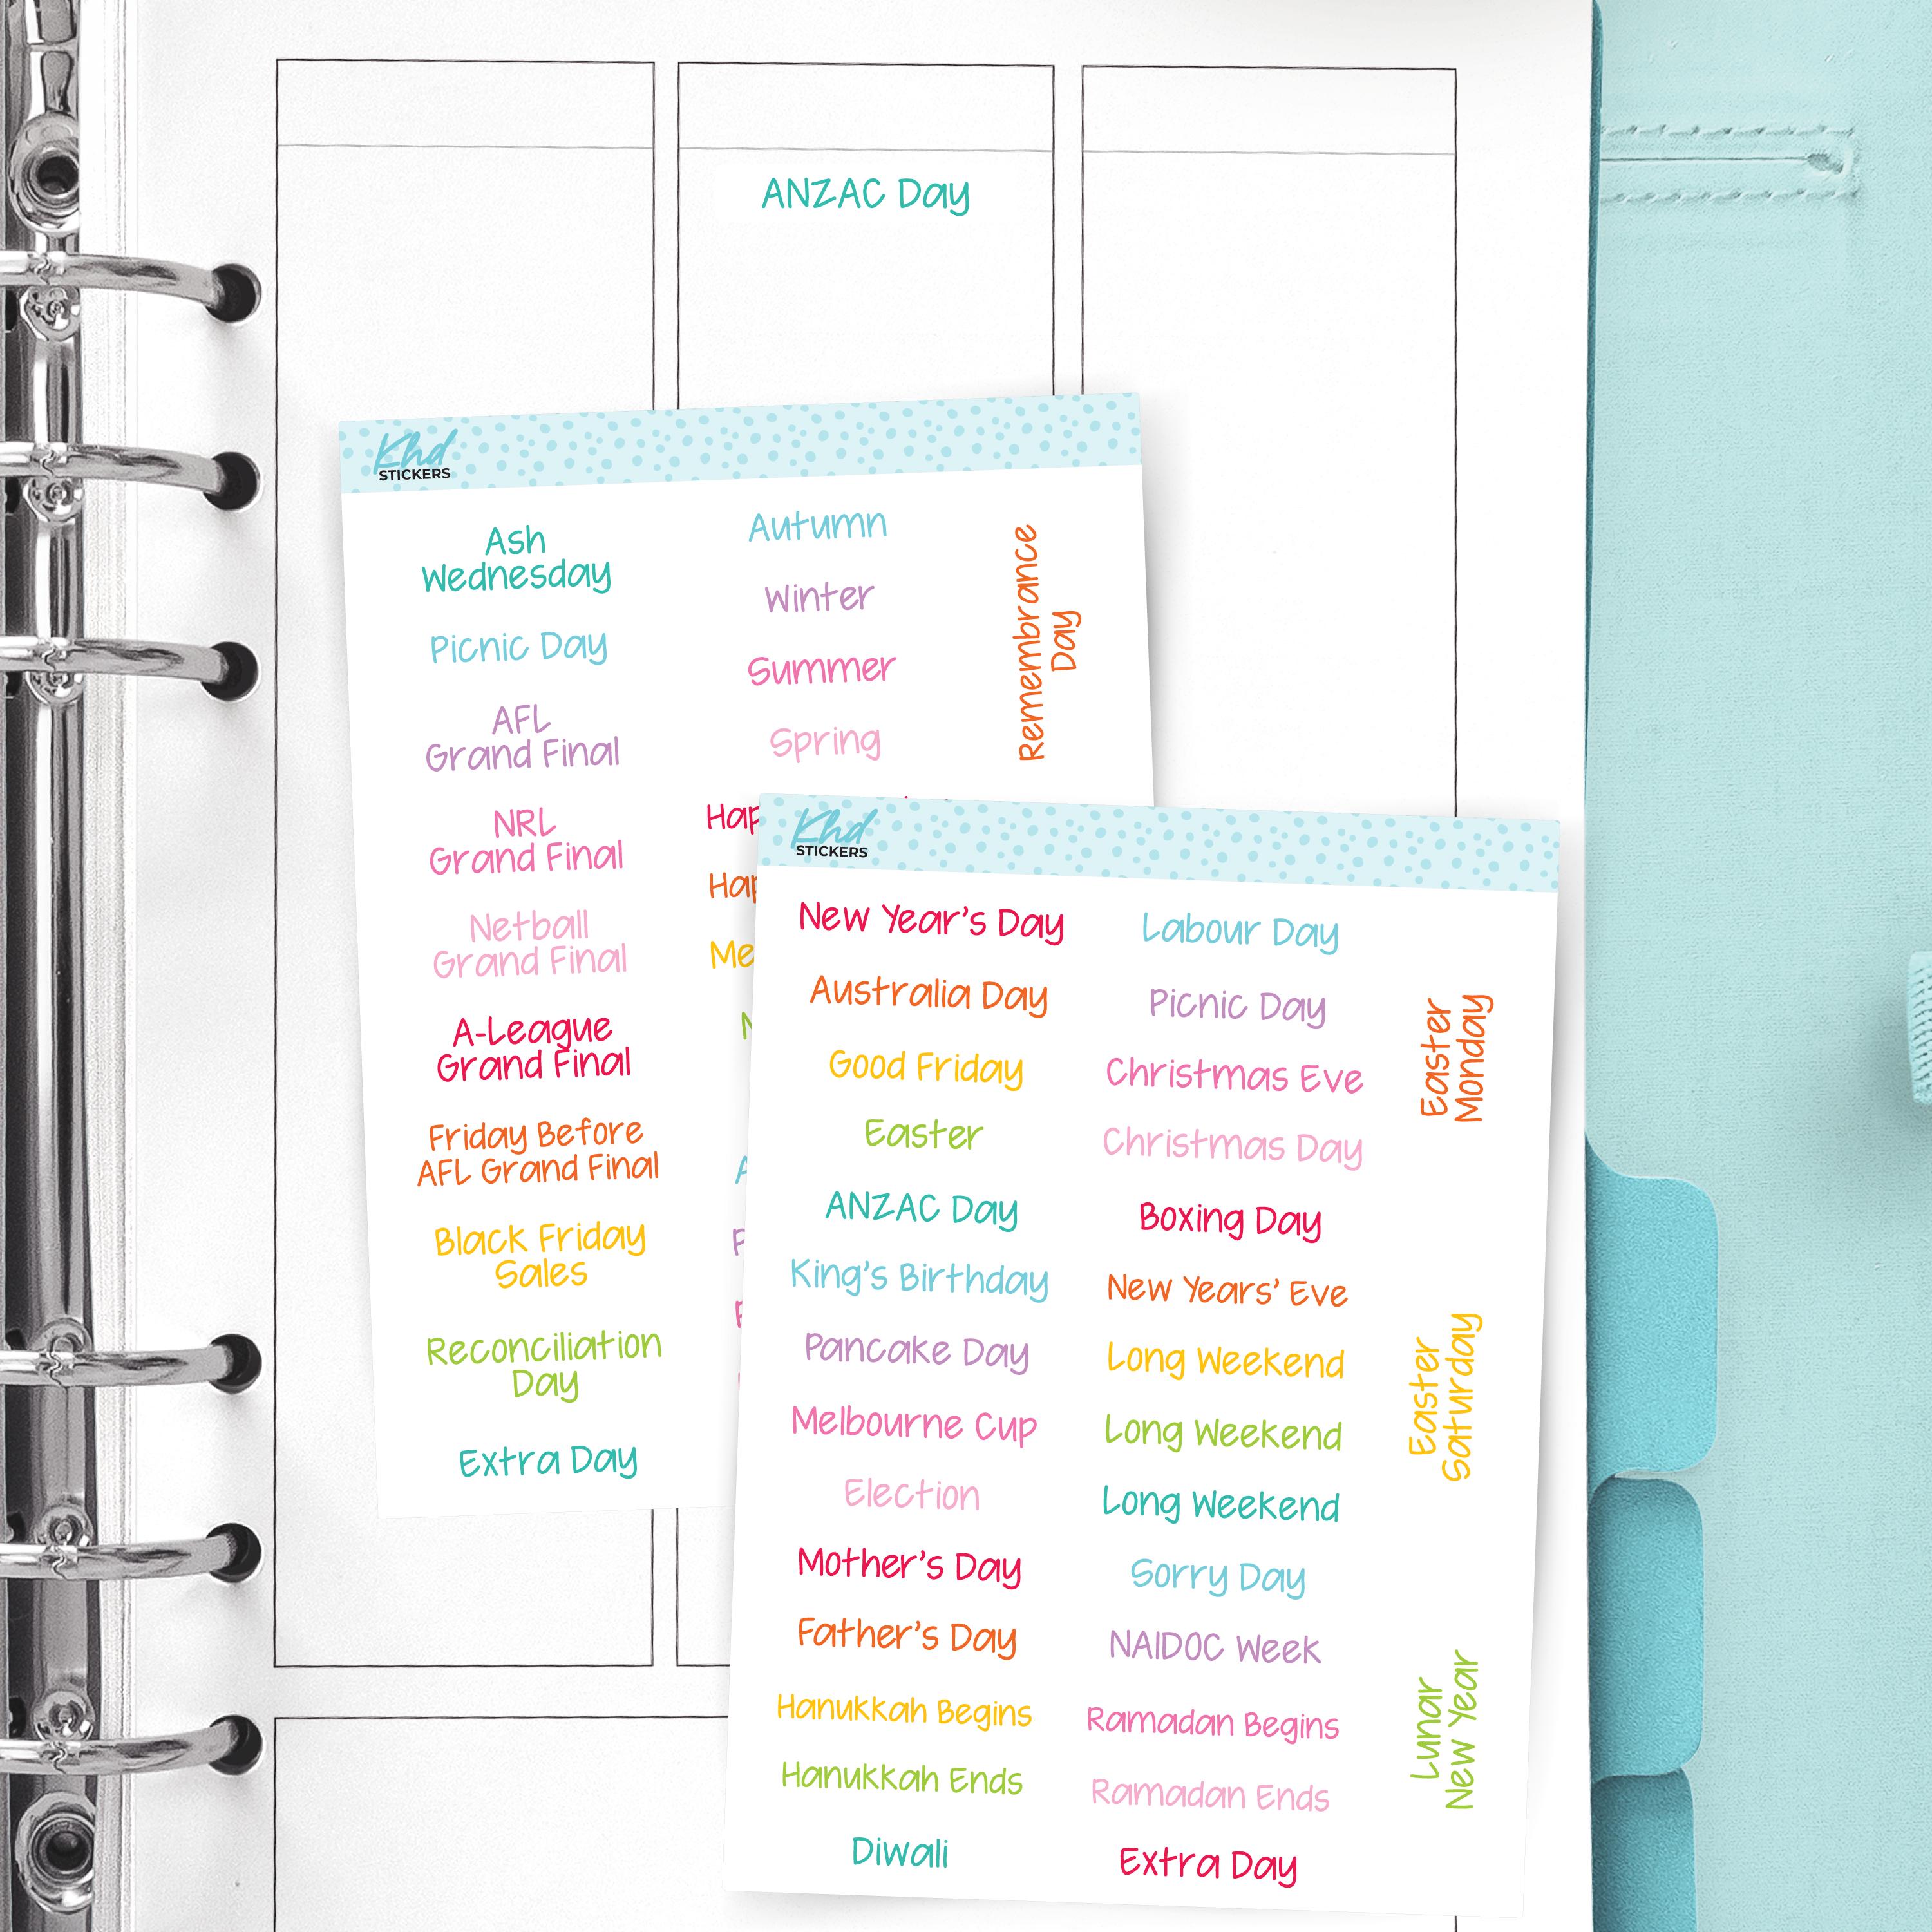 ANZAC Day
Khd
STICKERS
Ash
Wednesday
Picnic Day
AFL
Grand Final
NRL
Grand Final
Netball
Grand Final
A-League
Grand Final
Friday Before
AFL Grand Final
Black Friday
Sales
Reconciliation
Day
Extra Day
Autumn
Winter
Summer
Spring
Remembrance
Day
Khd
STICKERS
New Year's Day
Australia Day
Good Friday
Easter
ANZAC Day
King's Birthday
Pancake Day
Melbourne Cup
Election
Mother's Day
Father's Day
Hanukkah Begins
Hanukkah Ends
Diwali
Labour Day
Picnic Day
Christmas Eve
Christmas Day
Boxing Day
New Years' Eve
Long Weekend
Long Weekend
Long Weekend
Sorry Day
NAIDOC Week
Ramadan Begins
Ramadan Ends
Extra Day
Easter
Monday
Easter
Saturday
Lunar
New Year